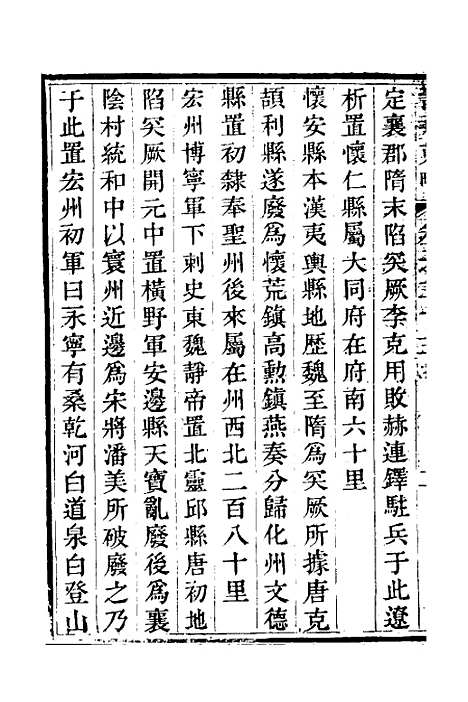 定襄郡隋末陷突厥李克用敗赫連鐸駐兵于此遼
析置懷仁縣屬大同府在府南六十里
懷安縣本漢夷輿縣地歷魏至隋爲突厥所據唐克
頡利縣遂廢爲懷荒鎮高勲鎮燕奏分歸化州文德
縣置初隸奉聖州後來屬在州西北二百八十里
宏州博寧軍下刺史東魏靜帝置北靈邱縣唐初地
陷突厥開元中置橫野軍安邊縣天寶亂廢後爲襄
陰村統和中以寰州近邊爲宋將潘美所破廢之乃
于此置宏州初軍曰永寧有桑乾河白道泉白登山